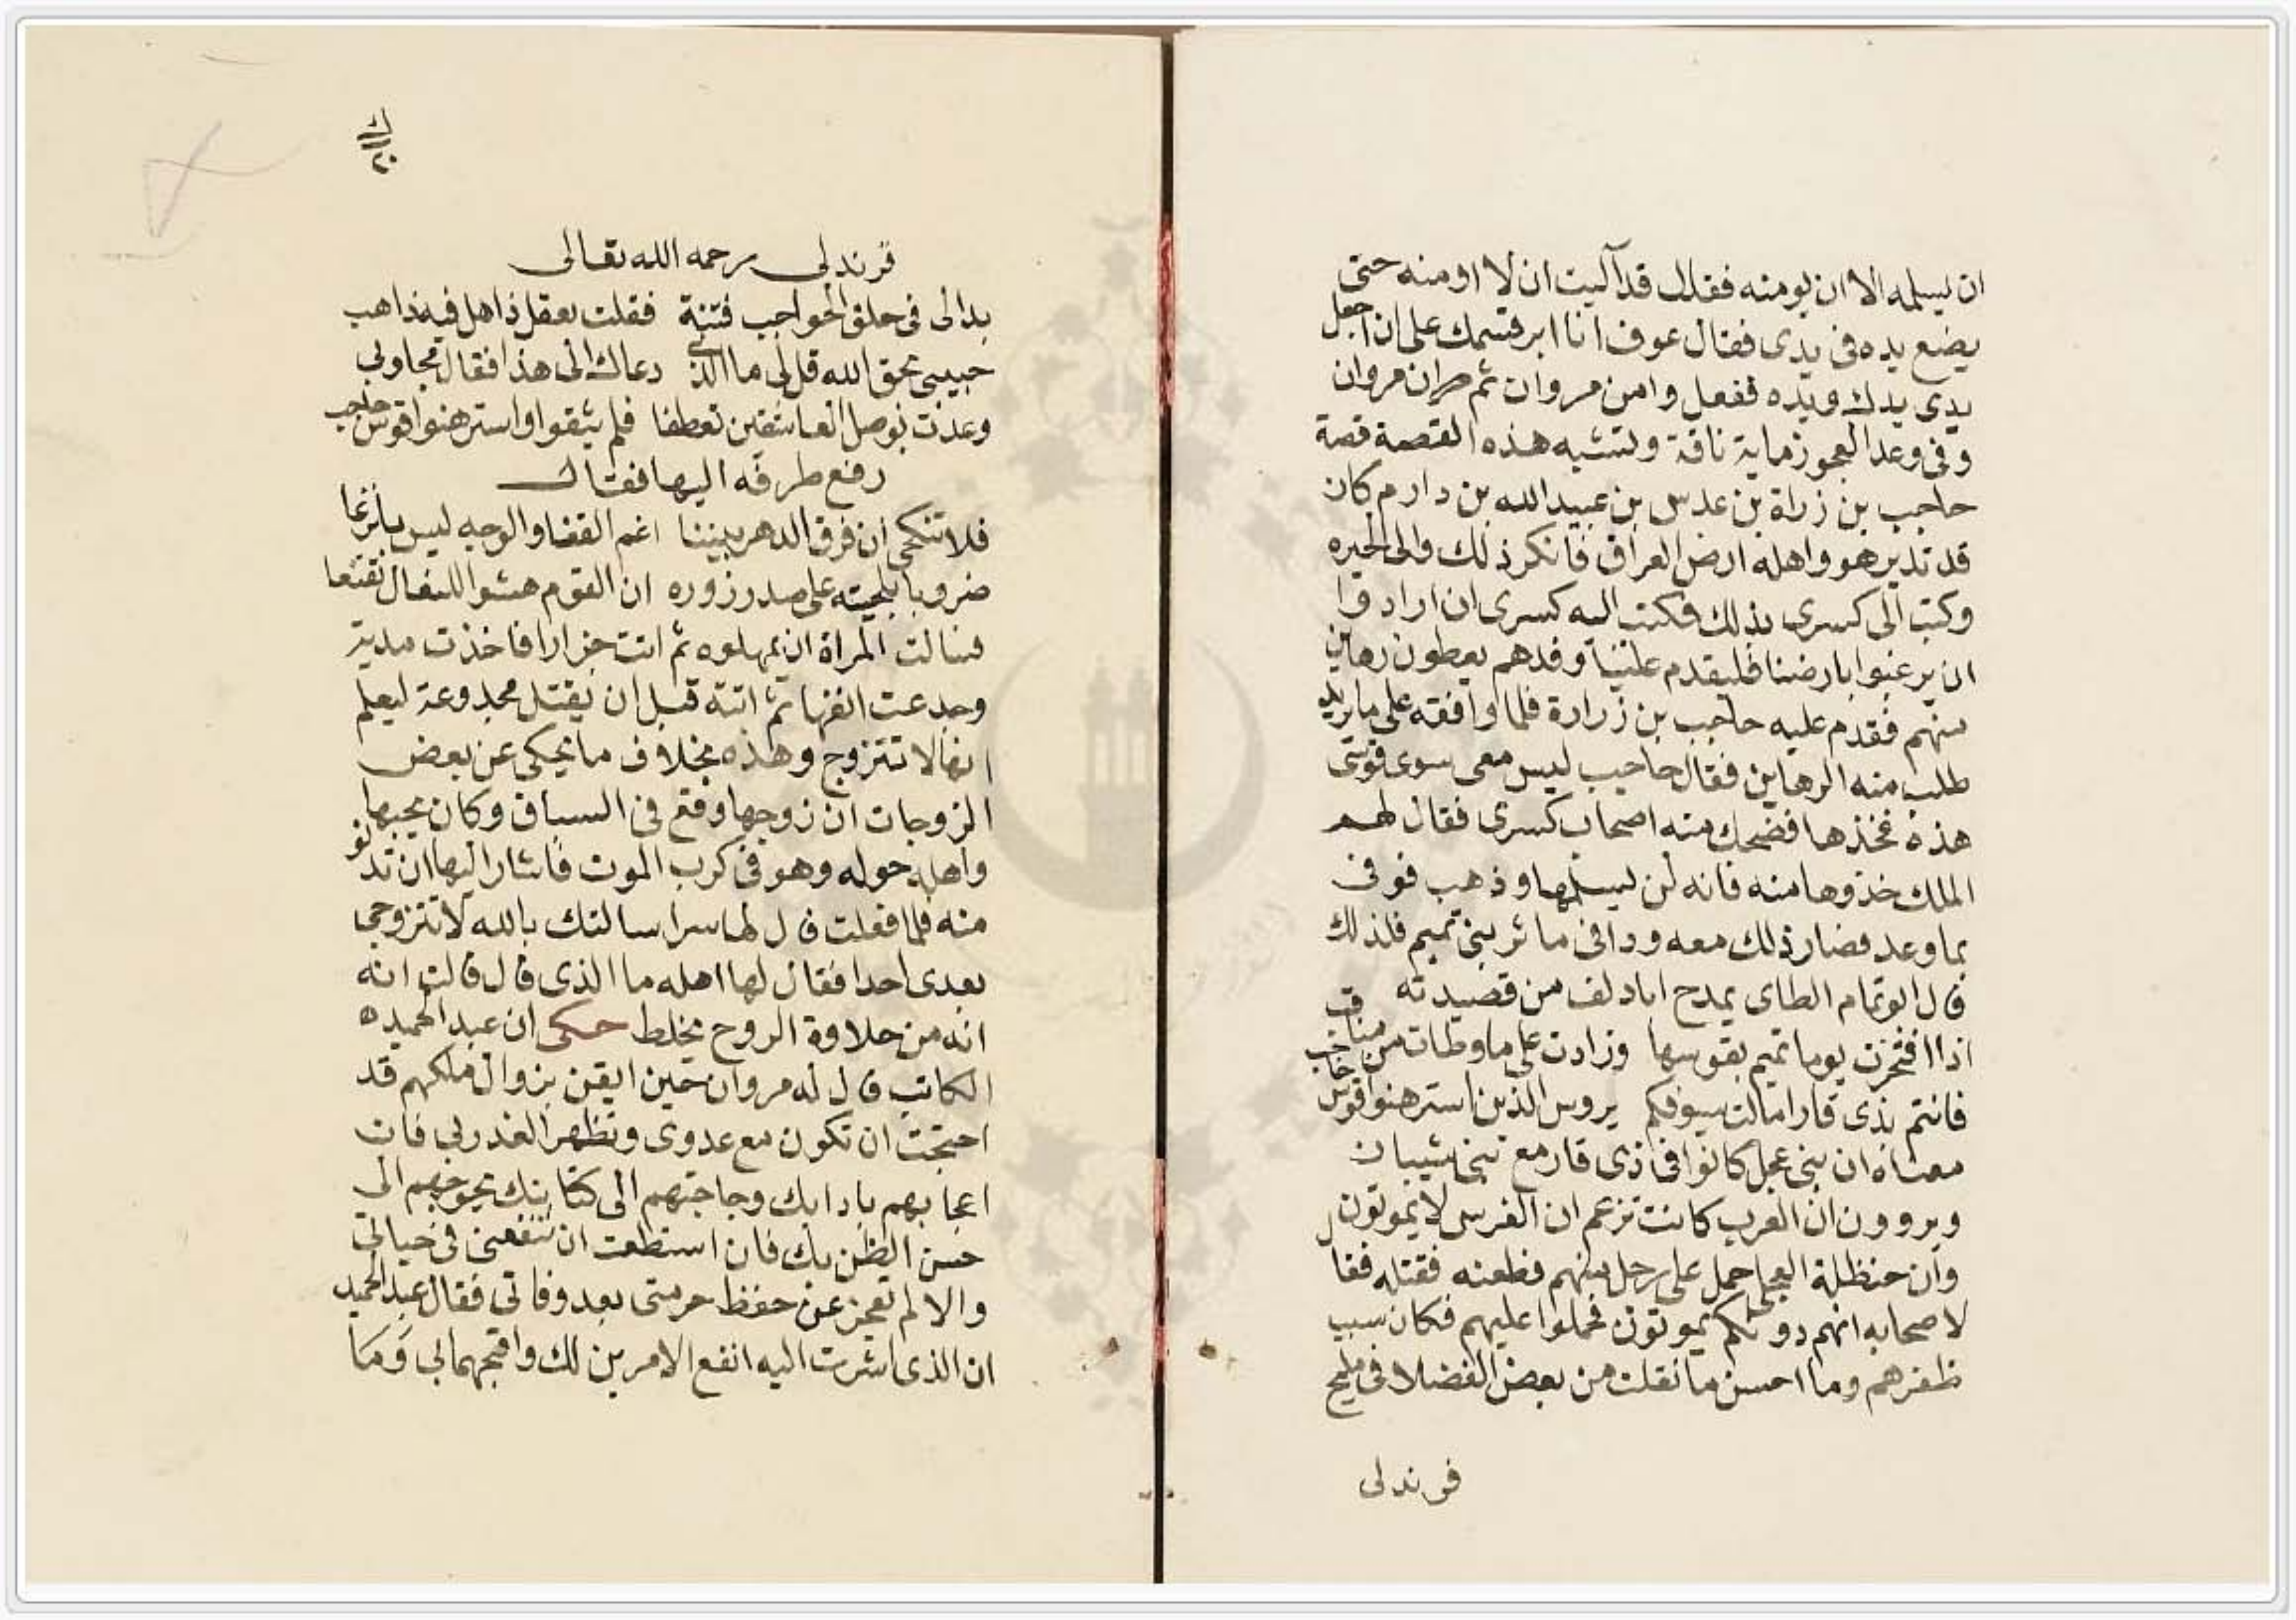 ان يسلمه الا ان يومنه فقال قد آليت ان لا اومنه حتى
يضع يده فى يدى فقال عوف انا ابر قسمك على ان اجعل
يدى يدك ويده ففعل وامن مروان ثم مروان
وفى وعد العجوز بماية ناقة وتشبه هذه القصة قصة
حاجب بن زراة بن عدس بن عبيد الله بن دارم كان
قد تدير هو واهله ارض العراق فانكر ذلك والى الحيره
وكتب الى كسرى بذلك فكتب اليه كسرى ان اراد وا
ان يرغبوا بارضنا فليقدم علينا وفدهم يعطون رهاين
منهم فقدم عليه حاجب بن زرارة فلما وافقه على ما يريد
طلب منه الرهاين فقال حاجب ليس معى سوى قوسى
هذه فخذها فضحك منه اصحاب كسرى فقال لهم
الملك خذوها منه فانه لن يسلمها وذهب فوفى
بما وعد فصار ذلك معه ودا فى ماثر بنى تميم فلذلك
قال ابو تمام الطاى يمدح ابا دلف من قصيدته
اذا افتخرت يوما تميم بقوسها وزادت على ما وطات من مناقب
فانتم بذى قار امالت سيوفكم يروس الذين استرهنوا قوس حاجب
معناه ان بنى عجل كانوا فى ذى قار مع بنى شيبان
ويروون ان العرب كانت تزعم ان الفرس لا يموتون
وان حنظلة العجلى حمل على رجل منهم فطعنه فقتله فقال
لاصحابه انهم دونكم يموتون فحملوا عليهم فكان سبب
ظفرهم وما احسن ما نقلت من بعض الفضلا فى مليح
قرندلى
قرندلى رحمه الله تعالى
بدا لى فى حلق الحواجب فتنة فقلت بعقل ذاهل فيه ذاهب
حبيبى بحق الله قل لى ما الذى دعاك الى هذا فقال مجاوبى
وعدت بوصل العاشقين تعطفا فلم يثقوا واسترهنوا قوس حاجب
رفع طرفه اليها فقال
فلا تنكحى ان فرق الدهر بيننا اغم القفا والوجه ليس بانزعا
ضروبا بلحيته على صدر زوره ان القوم هشوا للفعال تقنعا
فسالت المراة ان يمهلوه ثم اتت جزارا فاخذت مدية
وجدعت انفها ثم اتته قبل ان يقتل مجدوعة ليعلم
انها لا تتزوج وهذه بخلاف ما يحكى عن بعض
الزوجات ان زوجها وقع فى السباق وكان يحبها
واهله حوله وهو فى كرب الموت فاشار اليها ان تدنو
منه فلما فعلت قال لها سرا سالتك بالله لا تتزوجى
بعدى احدا فقال لها اهله ما الذى قال قالت انه
انه من حلاوة الروح يخلط حكى ان عبد الحميده
الكاتب قال له مروان حين ايقن بزوال ملكهم قد
احتجت ان تكون مع عدوى وتظهر الغدر بى فان
اعجابهم بادابك وحاجتهم الى كتابتك تحوجهم الى
حسن الظن بك فان استطعت ان تنفعنى فى حياتى
والا لم تعجز عن حفظ حرمتى بعد وفاتى فقال عبد الحميد
ان الذى اشرت اليه انفع الامرين لك واقبحهما بى وما